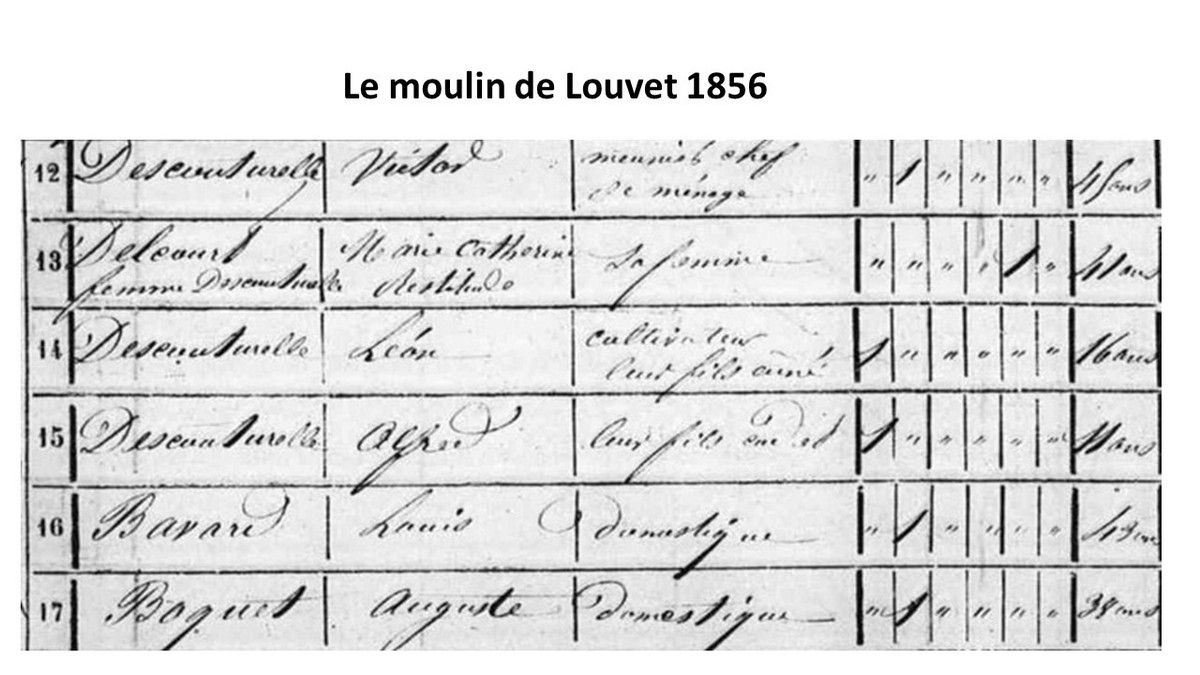 Le moulin de Louvet 1856
12 Descauturelle Victor meunier chef " 1 " " " " 45 ans
de ménage
13 Delcourt Marie Catherine sa femme " " " " 1 " 41 ans
femme Descauturelle Restitude
14 Descauturelle Léon cultivateur 1 " " " " " 16 ans
leur fils ainé
15 Descauturelle Alfred leur fils cadet 1 " " " " " 11 ans
16 Bavard Louis Domestique " 1 " " " "
17 Boquet Auguste Domestique " 1 " " " " 38 ans